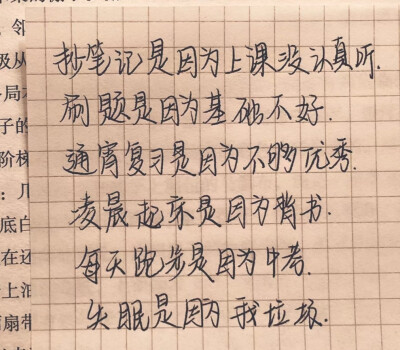 抄笔记是因为上课没认真听.
刷题是因为基础不好.
通宵复习是因为不够优秀.
凌晨起床是因为背书.
每天跑步是因为中考.
失眠是因为我垃圾.
邻
级从
局
子的
阶梯
：几
底白
在还
上油
扇带